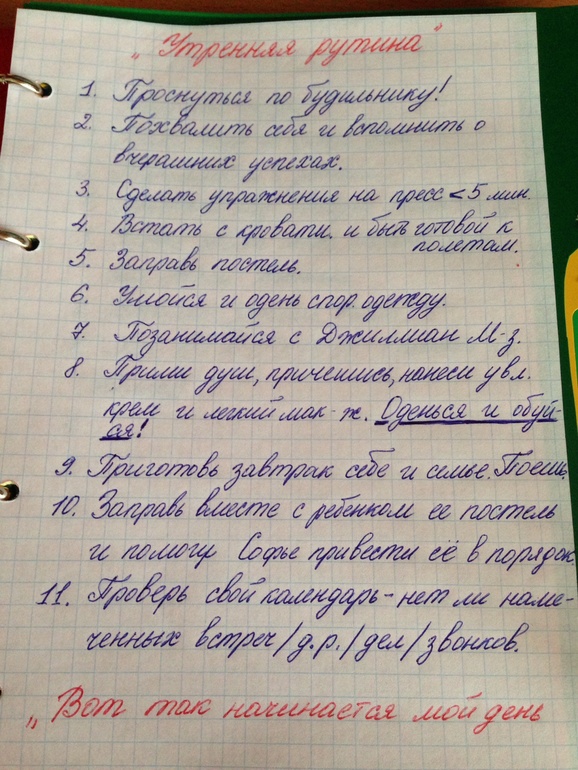 „Утренняя рутина"
1. Проснуться по будильнику!
2. Похвалить себя и вспомнить о
вчерашних успехах.
3. Сделать упражнения на пресс < 5 мин.
4. Встать с кровати и быть готовой к
полетам.
5. Заправь постель.
6. Умойся и одень спор. одежду.
7. Позанимайся с Джиллиан М-з.
8. Прими душ, причешись, нанеси увл.
крем и легкий мак-ж. Оденься и обуй-
ся!
9. Приготовь завтрак себе и семье. Поешь.
10. Заправь вместе с ребенком ее постель
и помогу Софье привести её в порядок
11. Проверь свой календарь - нет ли наме-
ченных встреч/д.р./дел/звонков.
„Вот так начинается мой день